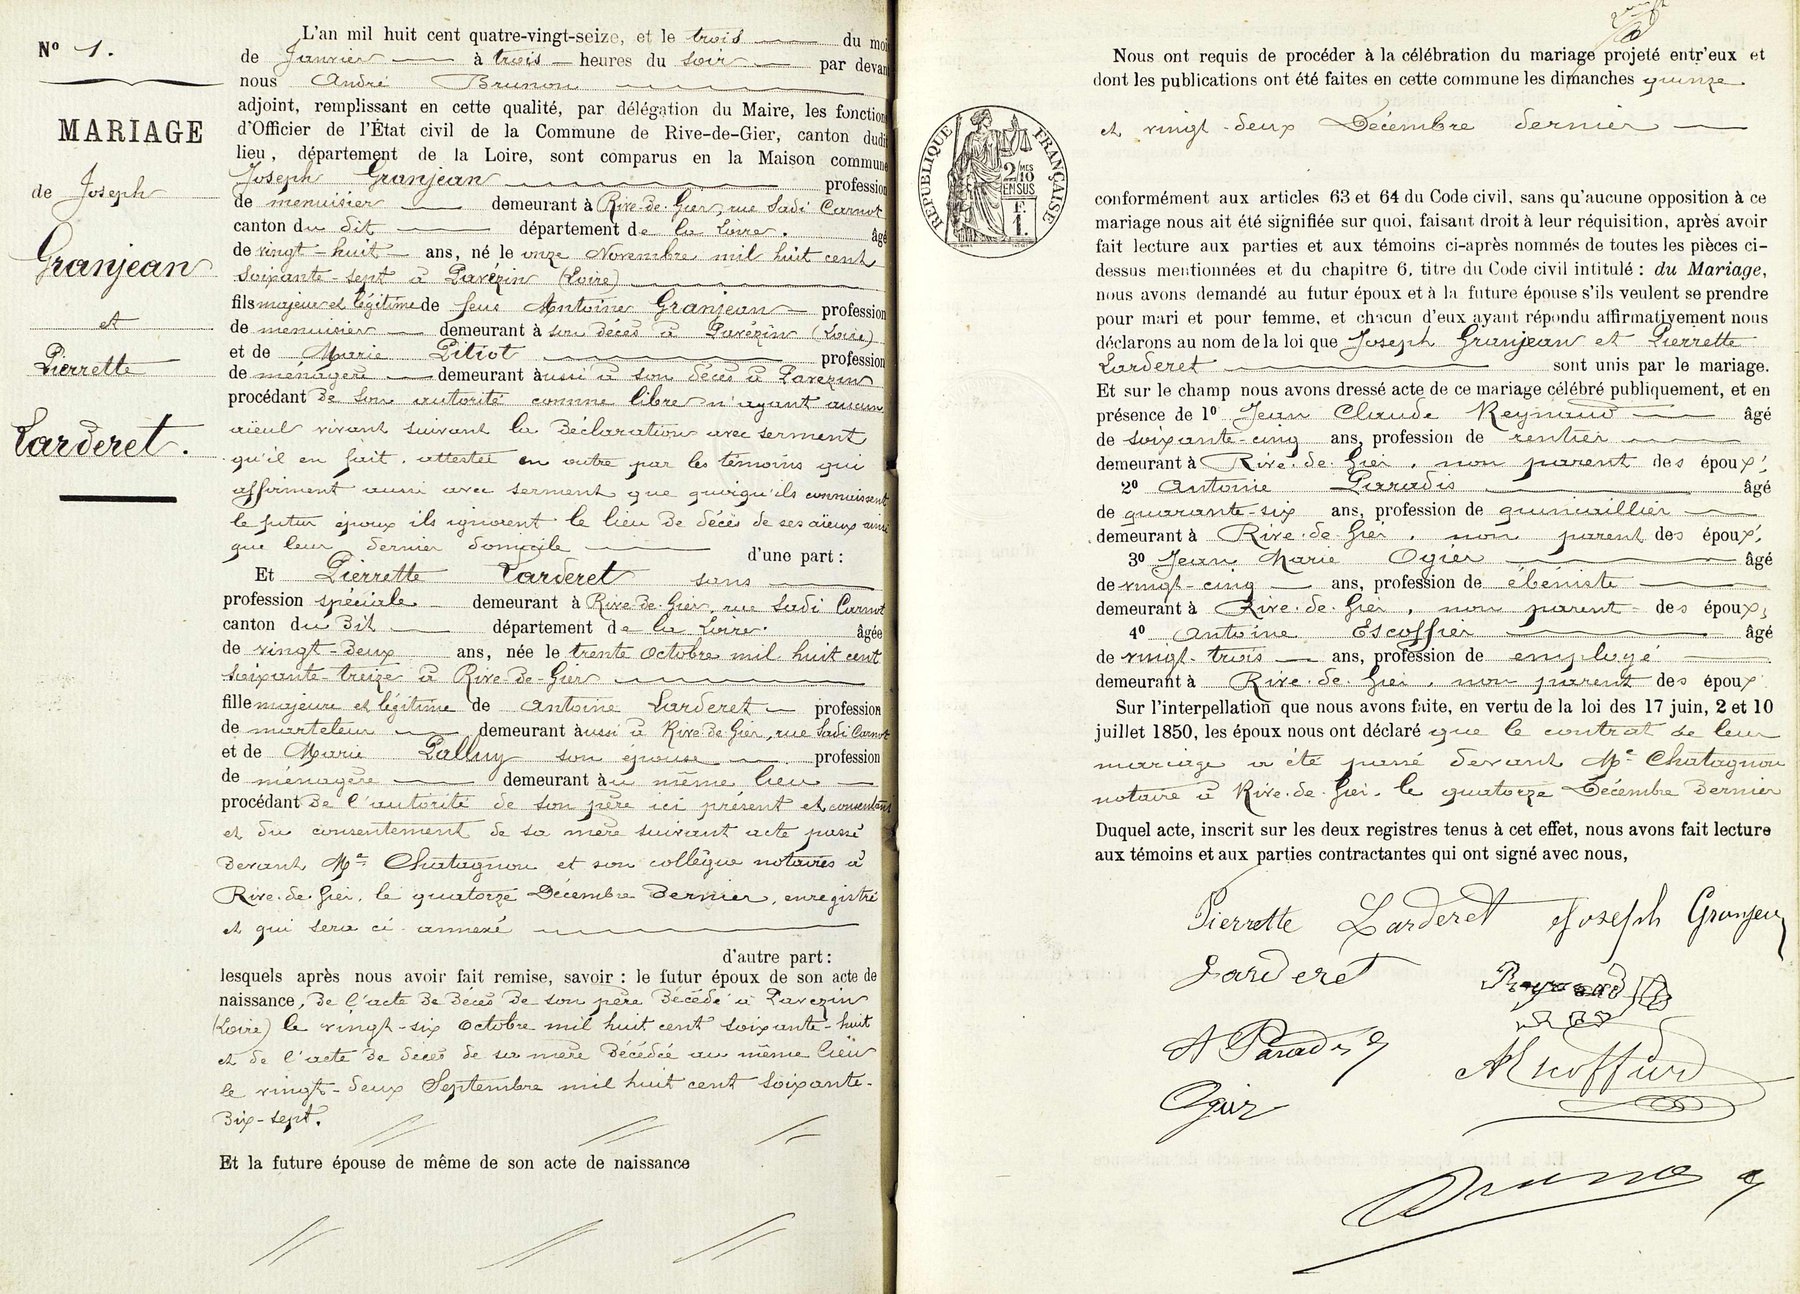 Nº 1.
MARIAGE
de Joseph
Granjean
et
Pierrette
Larderet.
L'an mil huit cent quatre-vingt-seize, et le trois du moi
de Janvier à trois heures du soir par devan
nous André Brunon
adjoint, remplissant en cette qualité, par délégation du Maire, les fonction
d'Officier de l'État civil de la Commune de Rive-de-Gier, canton dudi
lieu, département de la Loire, sont comparus en la Maison commune
Joseph Granjean profession
de menuisier demeurant à Rive-de-Gier, rue Sadi Carnot
canton du dit département de la Loire. âgé
de vingt-huit ans, né le onze Novembre mil huit cent
soixante-sept à Pavézin (Loire)
fils majeur et légitime de feus Antoine Granjean profession
de menuisier demeurant à son décès à Pavézin (Loire)
et de Marie Pitiot profession
de ménagère demeurant aussi à son décès à Pavezin
procédant de son autorité comme libre n'ayant aucun
aïeul vivant suivant la déclaration avec serment
qu'il en fait, attestée en outre par les témoins qui
affirment aussi avec serment que quoiqu'ils connaissent
le futur époux ils ignorent le lieu de décès de ses aïeux ainsi
que leur dernier domicile d'une part :
Et Pierrette Larderet sans
profession spéciale demeurant à Rive-de-Gier, rue Sadi Carnot
canton du dit département de la Loire. âgée
de vingt-deux ans, née le trente Octobre mil huit cent
soixante-treize à Rive-de-Gier
fille majeure et légitime de Antoine Larderet profession
de marteleur demeurant aussi à Rive-de-Gier, rue Sadi Carnot
et de Marie Palluy son épouse profession
de ménagère demeurant au même lieu
procédant de l'autorité de son père ici présent et consentant
et du consentement de sa mère suivant acte passé
devant Me Chatagnon et son collègue notaires à
Rive-de-Gier, le quatorze Décembre dernier, enregistré
et qui sera ci-annexé
d'autre part :
lesquels après nous avoir fait remise, savoir : le futur époux de son acte de
naissance, de l'acte de décès de son père décédé à Pavezin
(Loire) le vingt-six octobre mil huit cent soixante-huit
et de l'acte de décès de sa mère décédée au même lieu
le vingt-deux Septembre mil huit cent soixante-
dix-sept.
Et la future épouse de même de son acte de naissance
Nous ont requis de procéder à la célébration du mariage projeté entr'eux et
dont les publications ont été faites en cette commune les dimanches quinze
et vingt-deux Décembre dernier
RÉPUBLIQUE FRANÇAISE
2/10 MES
EN SUS
F.
1.
conformément aux articles 63 et 64 du Code civil, sans qu'aucune opposition à ce
mariage nous ait été signifiée sur quoi, faisant droit à leur réquisition, après avoir
fait lecture aux parties et aux témoins ci-après nommés de toutes les pièces ci-
dessus mentionnées et du chapitre 6, titre du Code civil intitulé : du Mariage,
nous avons demandé au futur époux et à la future épouse s'ils veulent se prendre
pour mari et pour femme, et chacun d'eux ayant répondu affirmativement nous
déclarons au nom de la loi que Joseph Granjean et Pierrette
Larderet sont unis par le mariage.
Et sur le champ nous avons dressé acte de ce mariage célébré publiquement, et en
présence de 1º Jean Claude Reynaud âgé
de soixante-cinq ans, profession de rentier
demeurant à Rive-de-Gier, non parent des époux;
2º Antoine Paradis âgé
de quarante-six ans, profession de quincaillier
demeurant à Rive-de-Gier, non parent des époux;
3º Jean Marie Ogier âgé
de vingt-cinq ans, profession de ébéniste
demeurant à Rive-de-Gier, non parent des époux;
4º Antoine Escoffier âgé
de vingt-trois ans, profession de employé
demeurant à Rive-de-Gier, non parent des époux
Sur l'interpellation que nous avons faite, en vertu de la loi des 17 juin, 2 et 10
juillet 1850, les époux nous ont déclaré que le contrat de leur
mariage a été passé devant Me Chatagnon
notaire à Rive-de-Gier, le quatorze Décembre dernier
Duquel acte, inscrit sur les deux registres tenus à cet effet, nous avons fait lecture
aux témoins et aux parties contractantes qui ont signé avec nous,
Pierrette Larderet Joseph Granjean
Larderet Reynaud
A Paradis
Ogier
Brunon